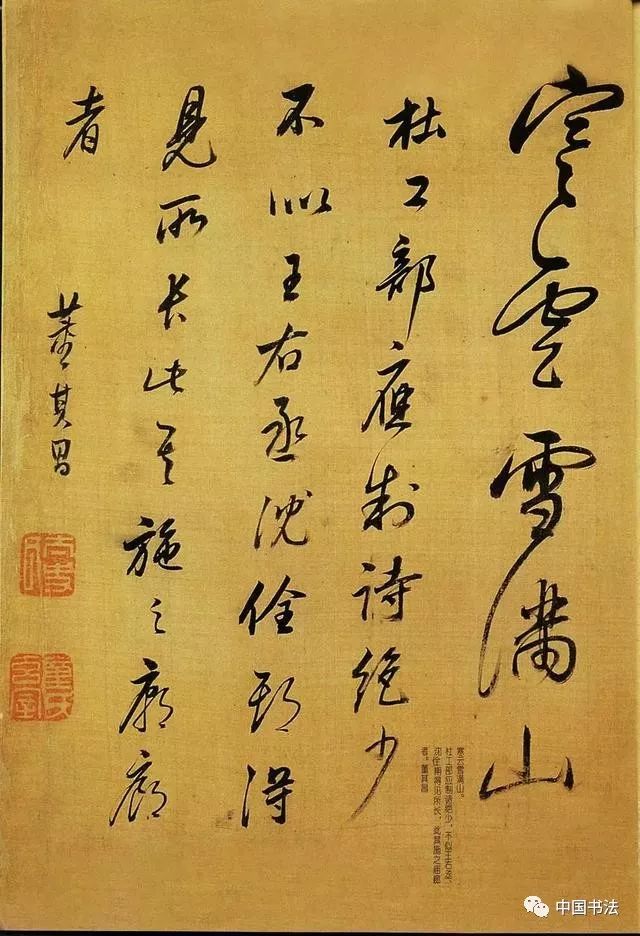 寒雲雪滿山
杜工部應制詩絕少
不似王右丞沈佺期得
見所長此其施之廟廊
者
董其昌
寒云雪满山。
杜工部应制诗绝少，不似王右丞、
沈佺期得见所长，此其施之庙廊
者。董其昌
中国书法